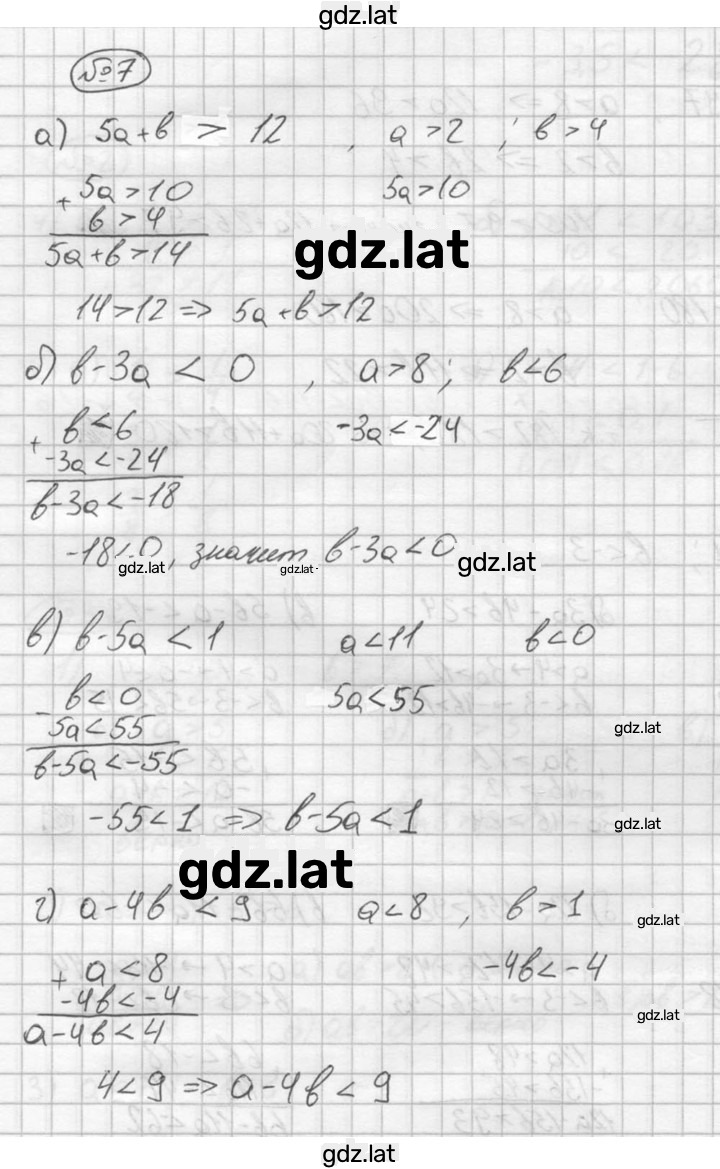 gdz.lat
№7
а) 5a+b > 12 , a>2 ; b>4
+ 5a>10 5a>10
b>4
5a+b>14
gdz.lat
14>12 => 5a+b>12
б) b-3a < 0 , a>8; b<6
+ b<6 -3a<-24
-3a<-24
b-3a<-18
-18<0, значит b-3a<0
gdz.lat gdz.lat gdz.lat
в) b-5a<1 a<11 b<0
- b<0 5a<55
5a<55
gdz.lat
b-5a<-55
-55<1 => b-5a<1
gdz.lat
gdz.lat
г) a-4b<9 a<8 , b>1
gdz.lat
+ a<8 -4b<-4
-4b<-4
gdz.lat
a-4b<4
4<9 => a-4b<9
gdz.lat